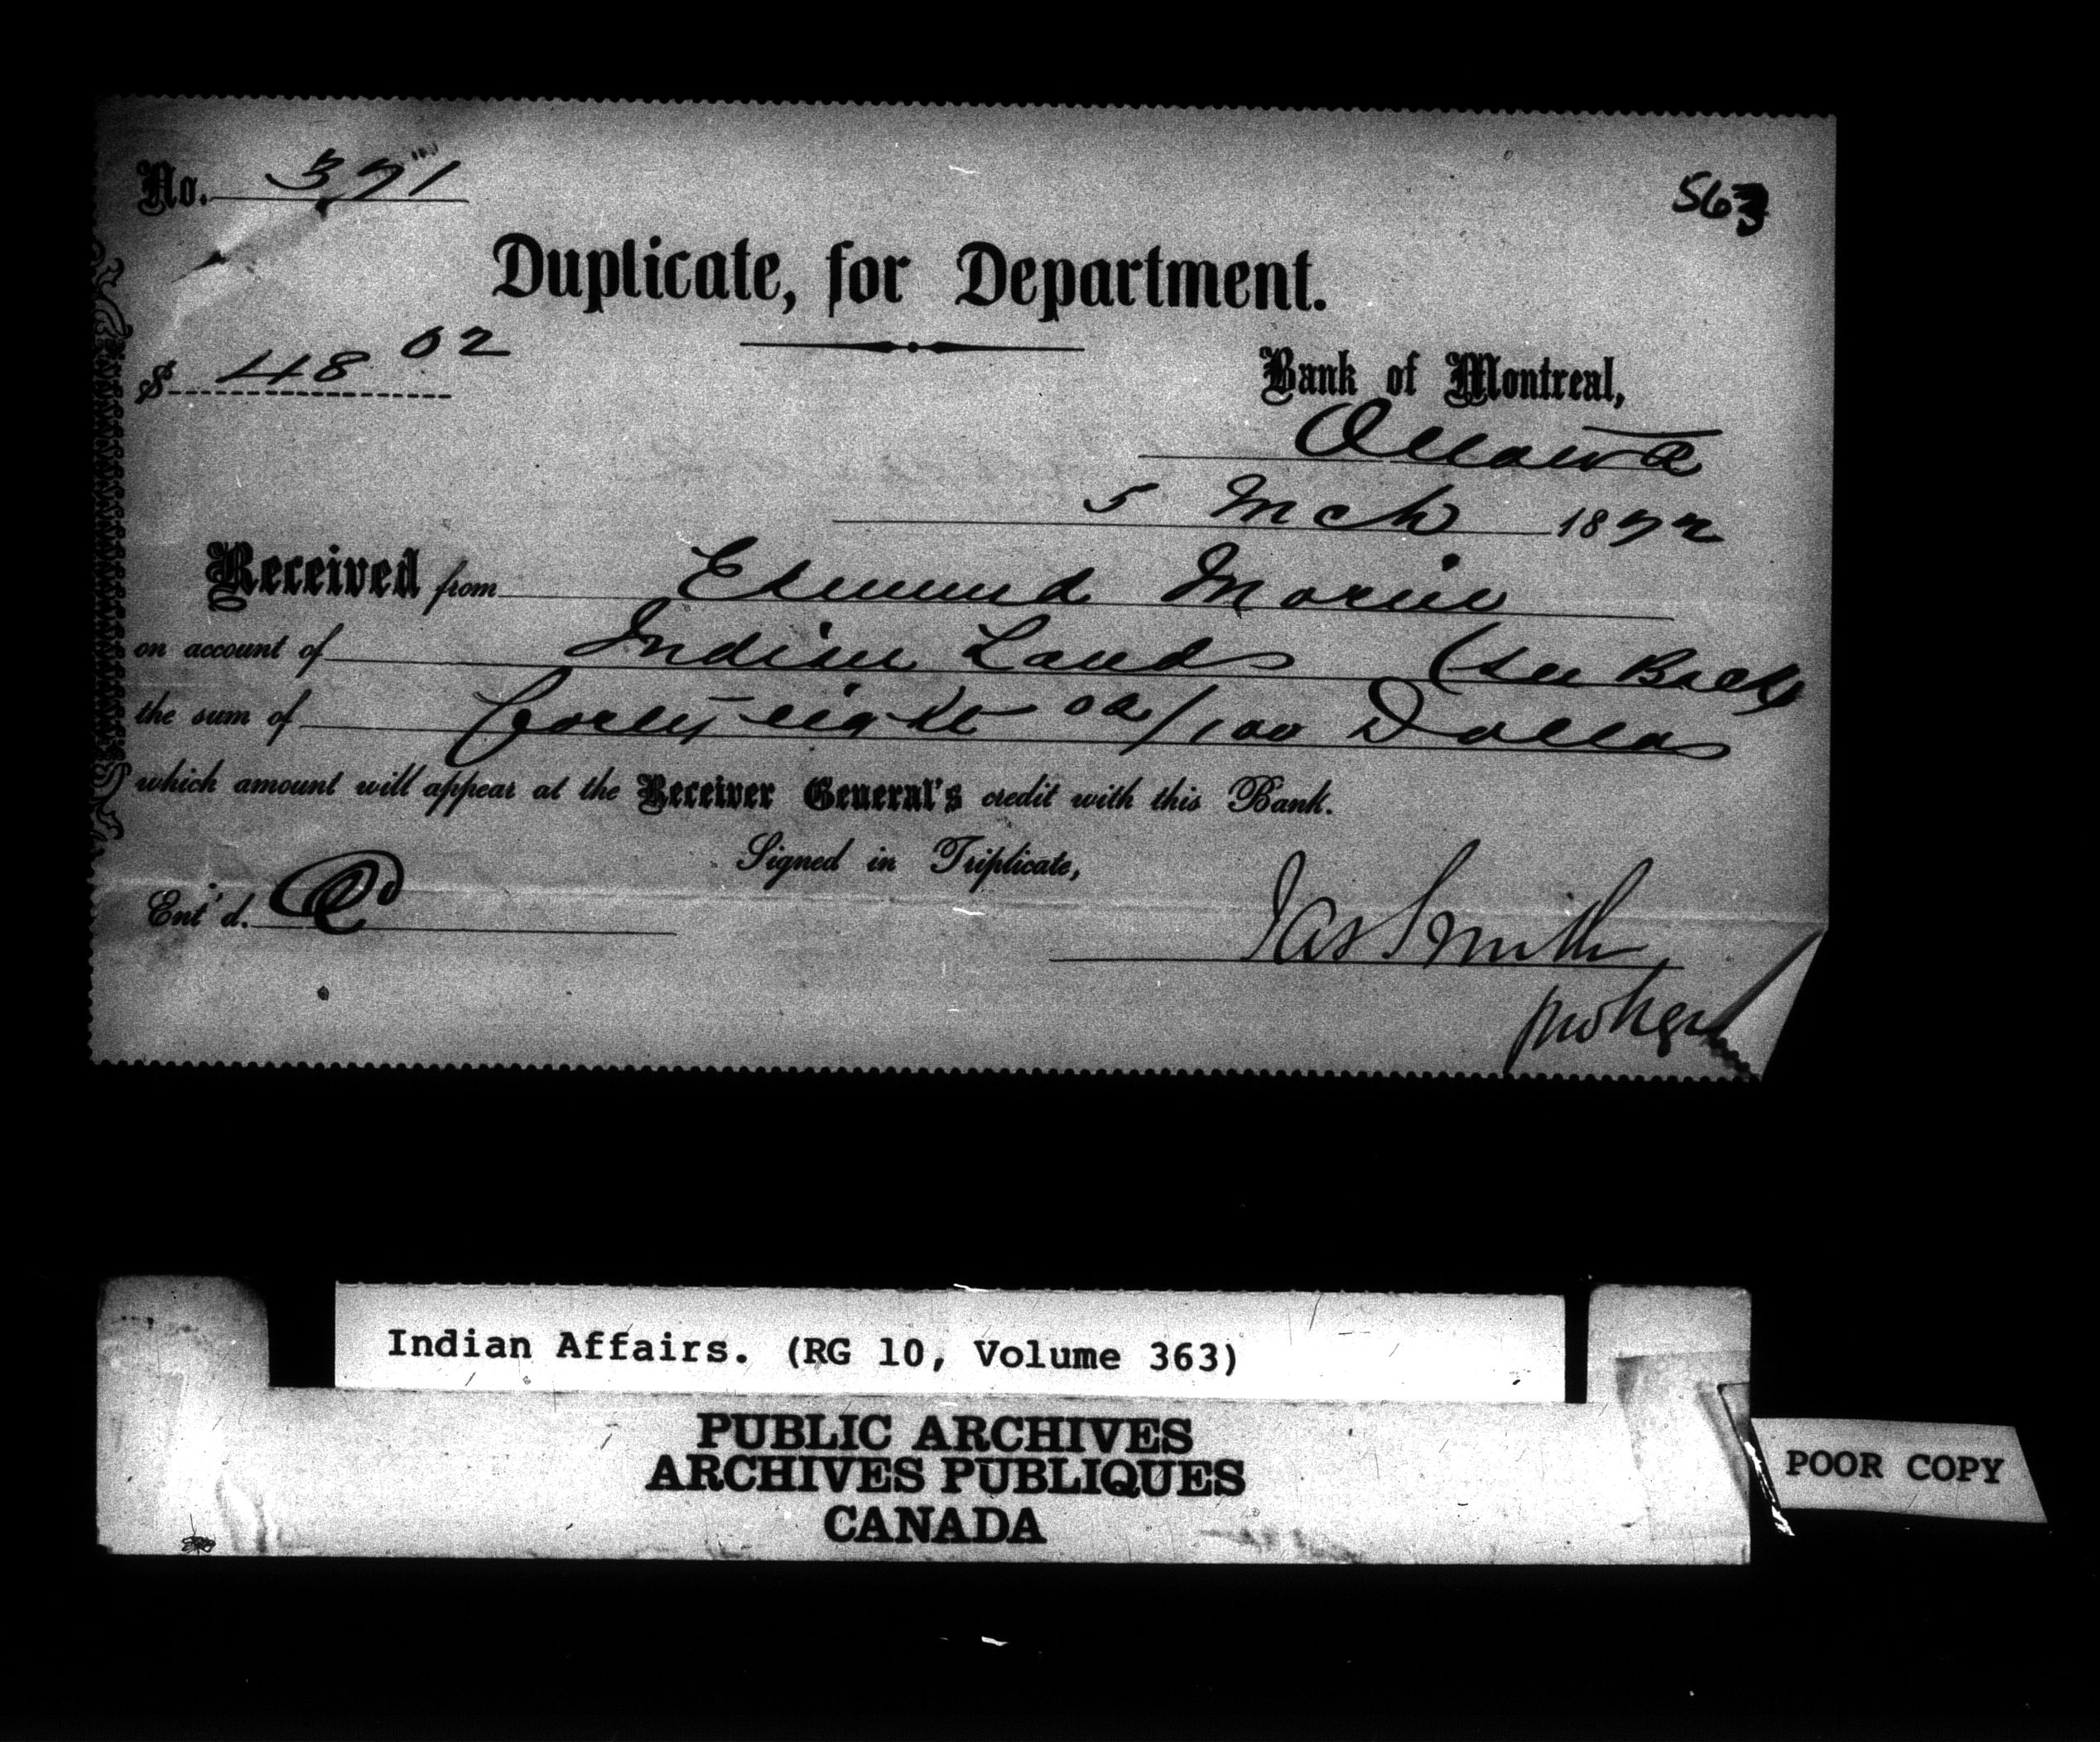 No. 371
563
Duplicate, for Department.
$ 48 02
Bank of Montreal,
Ottawa
5 Mch 1872
Received from Edmund Morin
on account of Indian Lands (see Back
the sum of forty eight 02/100 Dollars
which amount will appear at the Receiver General's credit with this Bank.
Signed in Triplicate,
Ent'd.
Jas Smith
Indian Affairs. (RG 10, Volume 363)
PUBLIC ARCHIVES
ARCHIVES PUBLIQUES
CANADA
POOR COPY